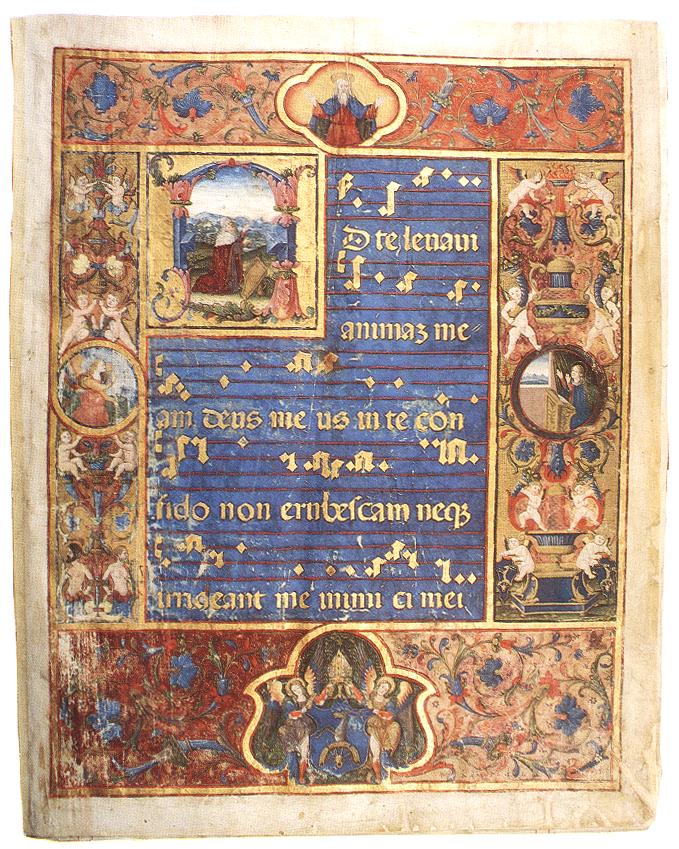 AD te levavi
animaʒ me⸗
am deus me us in te con
fido non erubescam neqʒ
irrideant me inimi ci mei